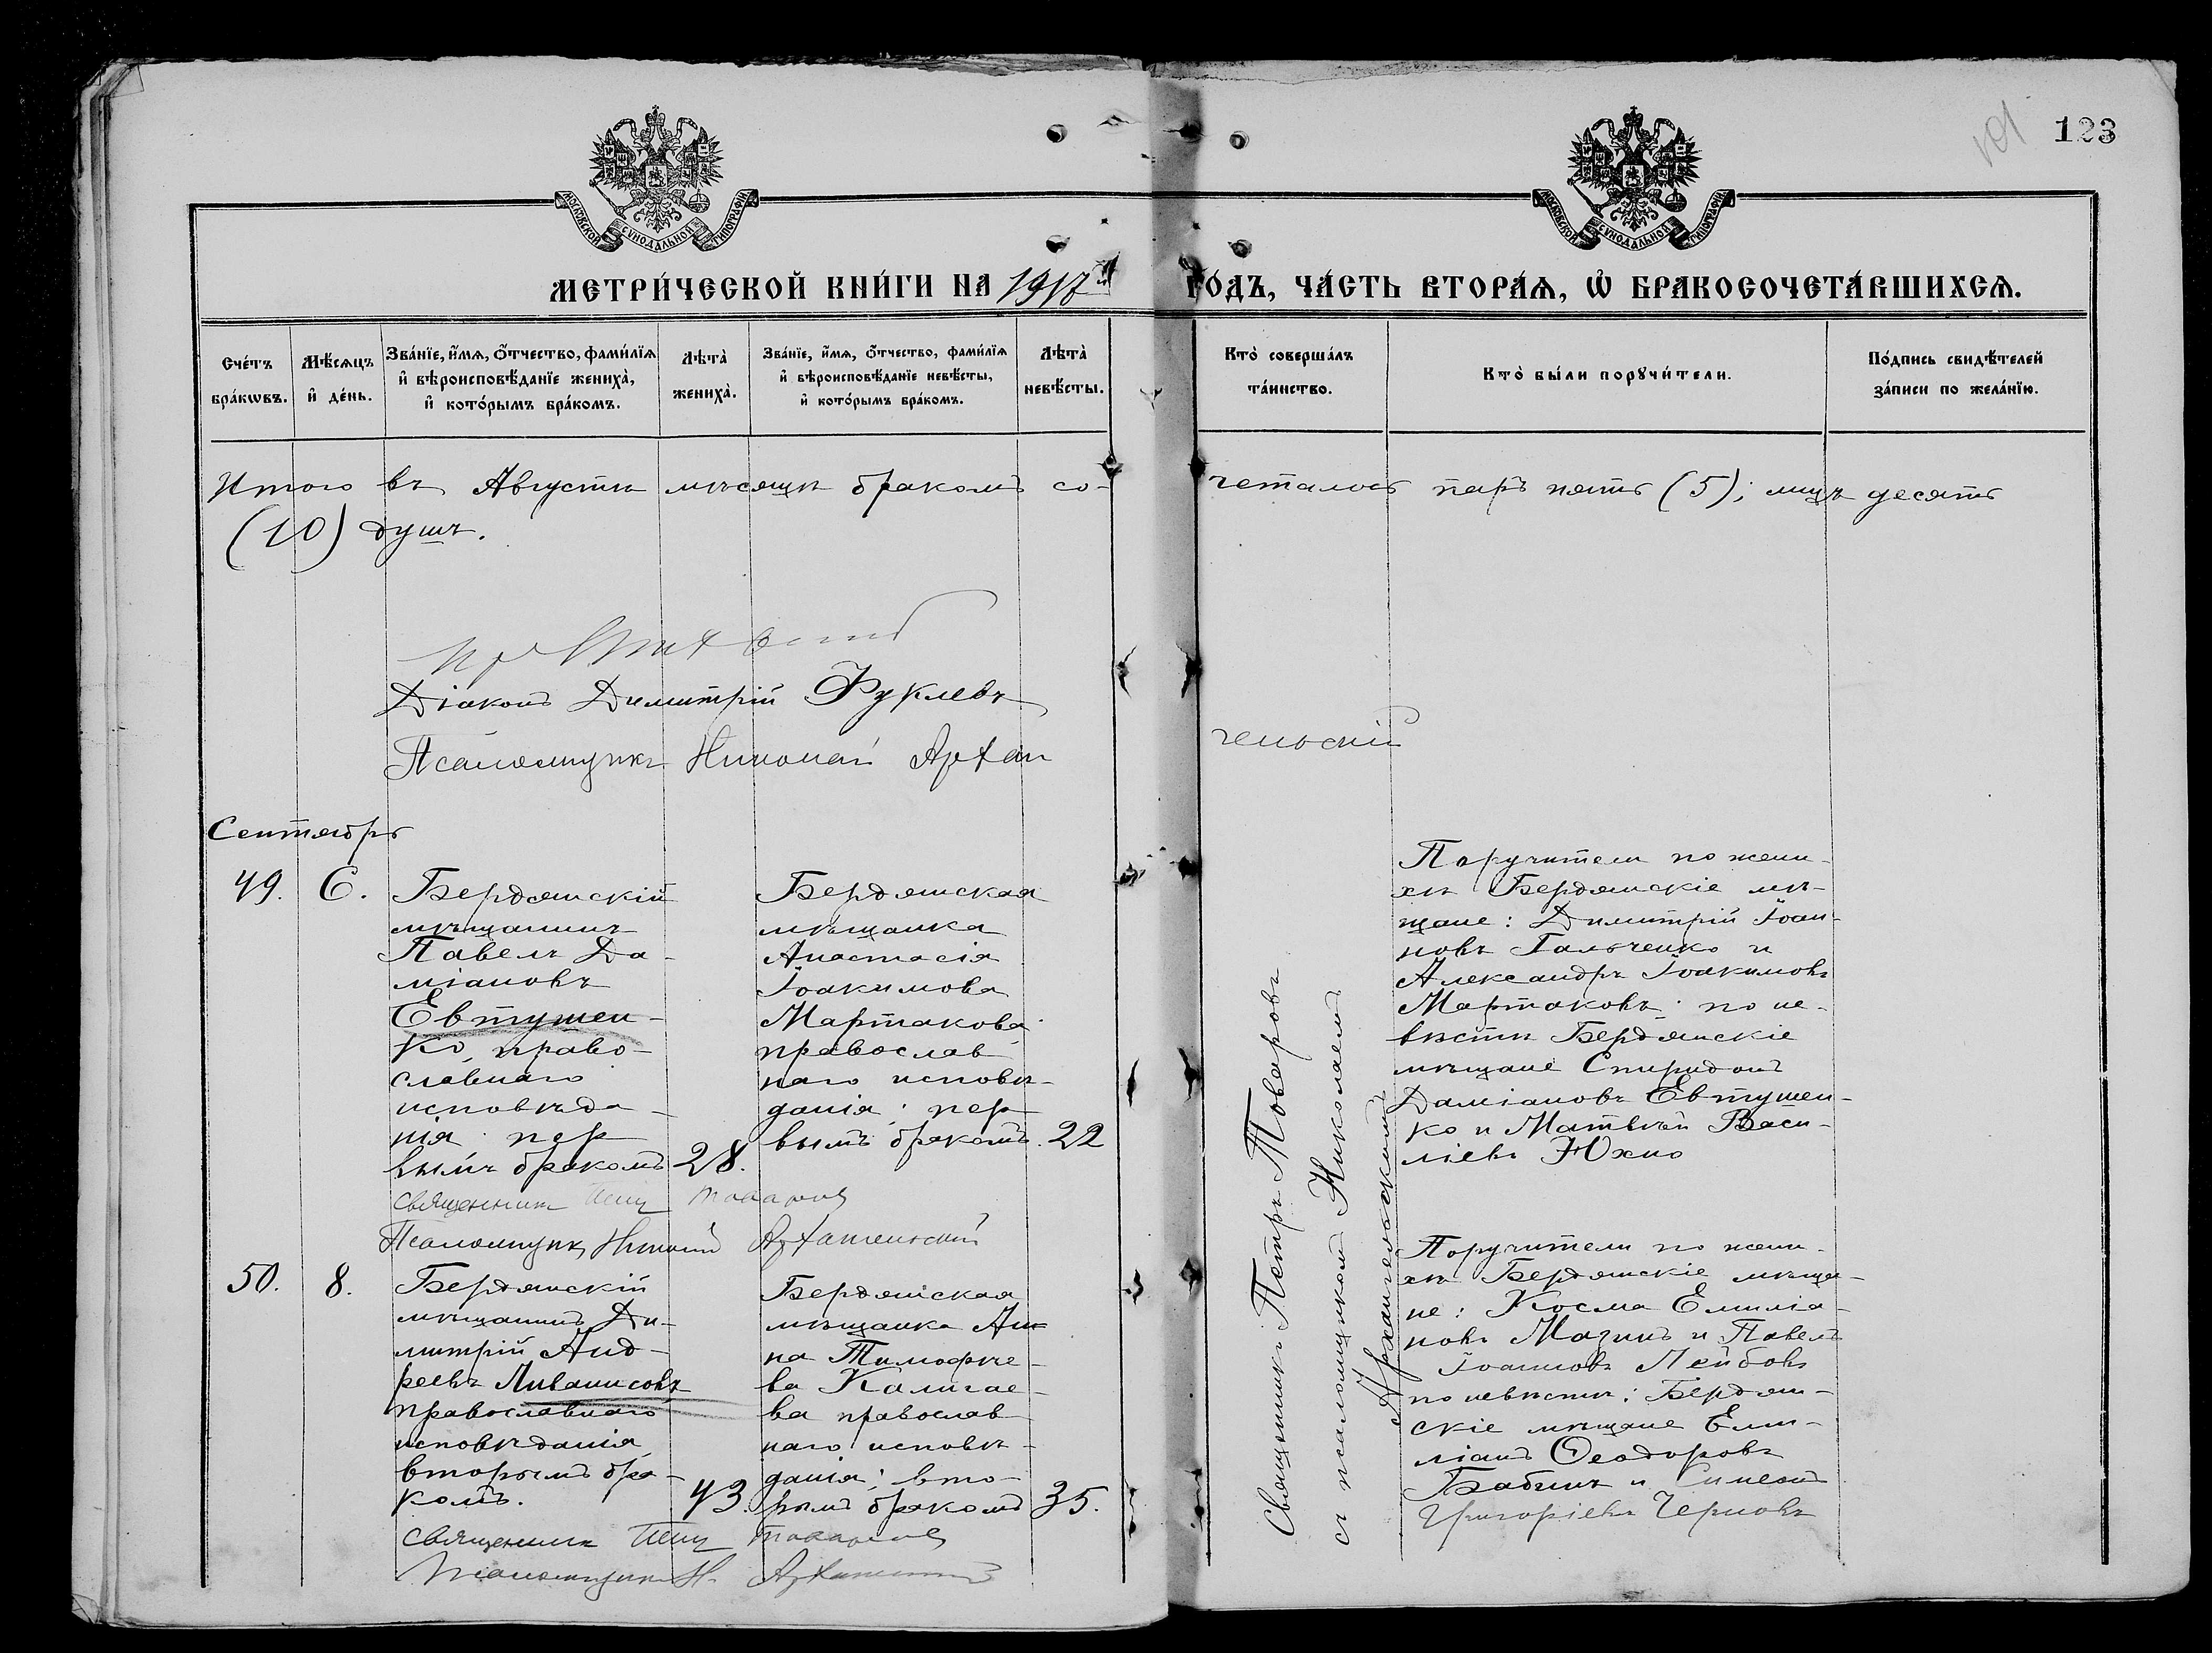 101
123
МОСКОВСКОЙ СѴНОДАЛЬНОЙ ТИПОГРАФІИ
МОСКОВСКОЙ СѴНОДАЛЬНОЙ ТИПОГРАФІИ
МЕТРИ́ЧЕСКОЙ КНИ́ГИ НА 1917й ГО́ДЪ, ЧА́СТЬ ВТОРА́Ѧ, Ѽ БРАКОСОЧЕТА́ВШИХСѦ.
Сче́тъ бра́кѡвъ.
Мѣ́сѧцъ и҆ де́нь.
Зва́нїе, и҆́мѧ, ѻ҆́тчество, фами́лїѧ и҆ вѣроисповѣ́данїе жениха̀, и҆ кото́рымъ бра́комъ.
Лѣта̀ жениха̀.
Зва́нїе, и҆́мѧ, ѻ҆́тчество, фами́лїѧ и҆ вѣроисповѣ́данїе невѣ́сты, и҆ кото́рымъ бра́комъ.
Лѣта̀ невѣ́сты.
Кто̀ соверша́лъ та́инство.
Кто̀ бы́ли порꙋчи́тели.
По́дпись свидѣ́телей за́писи по жела́нїю.
Итого въ Августѣ мѣсяцѣ бракомъ со-
четалось паръ пять (5); лицъ десять
(10) душъ.
Діаконъ Димитрій Фуклевъ
Псаломщикъ Николай Архан
гельскій
Сентябрь
49. 6.
Бердянскій
мѣщанинъ
Павелъ Да-
міановъ
Евтушен-
ко, право-
славнаго
исповѣда-
нія пер
вымъ бракомъ 28.
Бердянская
мѣщанка
Анастасія
Іоакимова
Мартакова
православ
наго исповѣ-
данія; пер
вымъ бракомъ. 22
Священникъ Петръ Товаровъ
съ псаломщикомъ Николаемъ
Архангельскимъ
Поручители по жени-
хѣ Бердянскіе мѣ-
щане: Димитрій Іоан-
новъ Гальченко и
Александръ Іоакимовъ
Мартаковъ; по не-
вѣстѣ Бердянскіе
мѣщане Спиридонъ
Даміановъ Евтушен-
ко и Матвѣй Васи-
ліевъ Юхно
священникъ Петръ Товаровъ
Псаломщикъ Николай Архангельскій
50. 8.
Бердянскій
мѣщанинъ Ди-
митрій Анд-
реевъ Ливанисовъ
православнаго
исповѣданія
вторымъ бра-
комъ. 43.
Бердянская
мѣщанка Ан-
на Тимофѣе-
ва Калигае-
ва православ
наго исповѣ-
данія; вто-
рымъ бракомъ 35.
Поручители по жени-
хѣ Бердянскіе мѣща-
не: Косма Емиліа-
новъ Мазинъ и Павелъ
Іоанновъ Лейбовъ
по невѣстѣ: Бердян-
скіе мѣщане Еми-
ліанъ Ѳеодоровъ
Бабинъ и Симеонъ
Григоріевъ Черновъ
священникъ Петръ Товаровъ
Псаломщикъ Н. Архангельскій